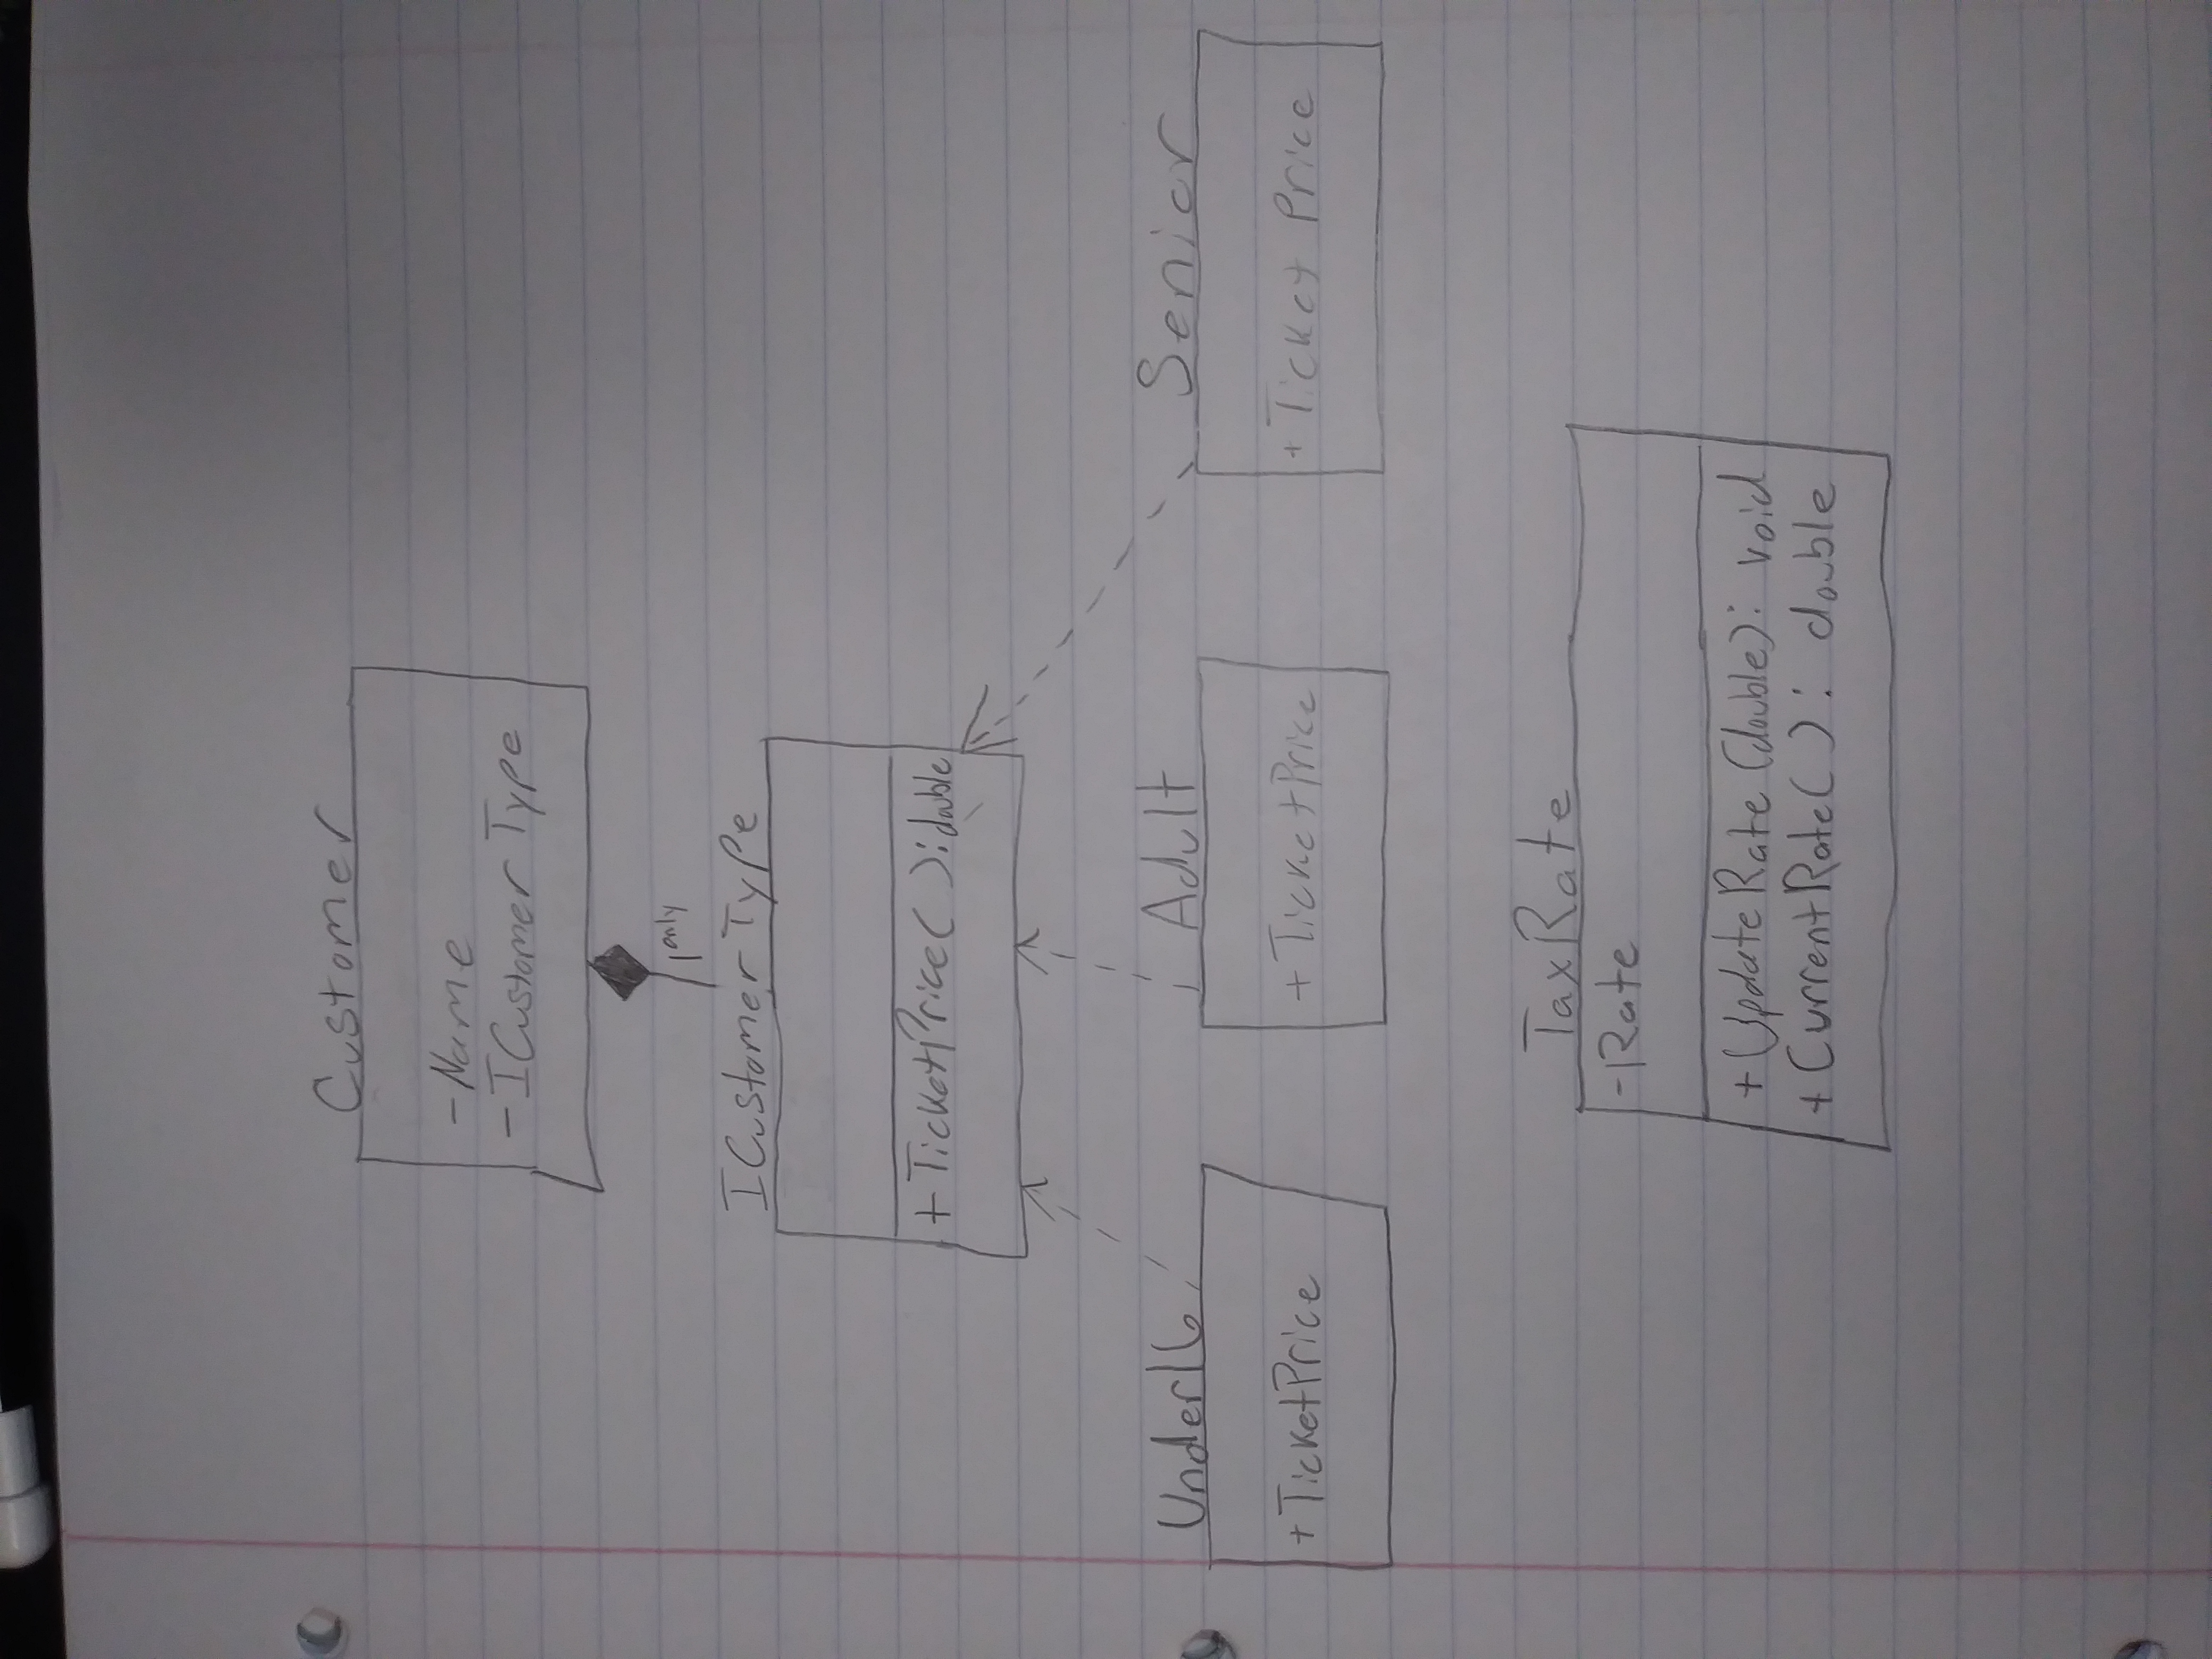 Customer
-Name
-ICustomerType
1 only
ICustomerType
+TicketPrice( ):double
Under16
Adult
Senior
+TicketPrice
+TicketPrice
+Ticket Price
TaxRate
-Rate
+UpdateRate(double): void
+CurrentRate( ): double